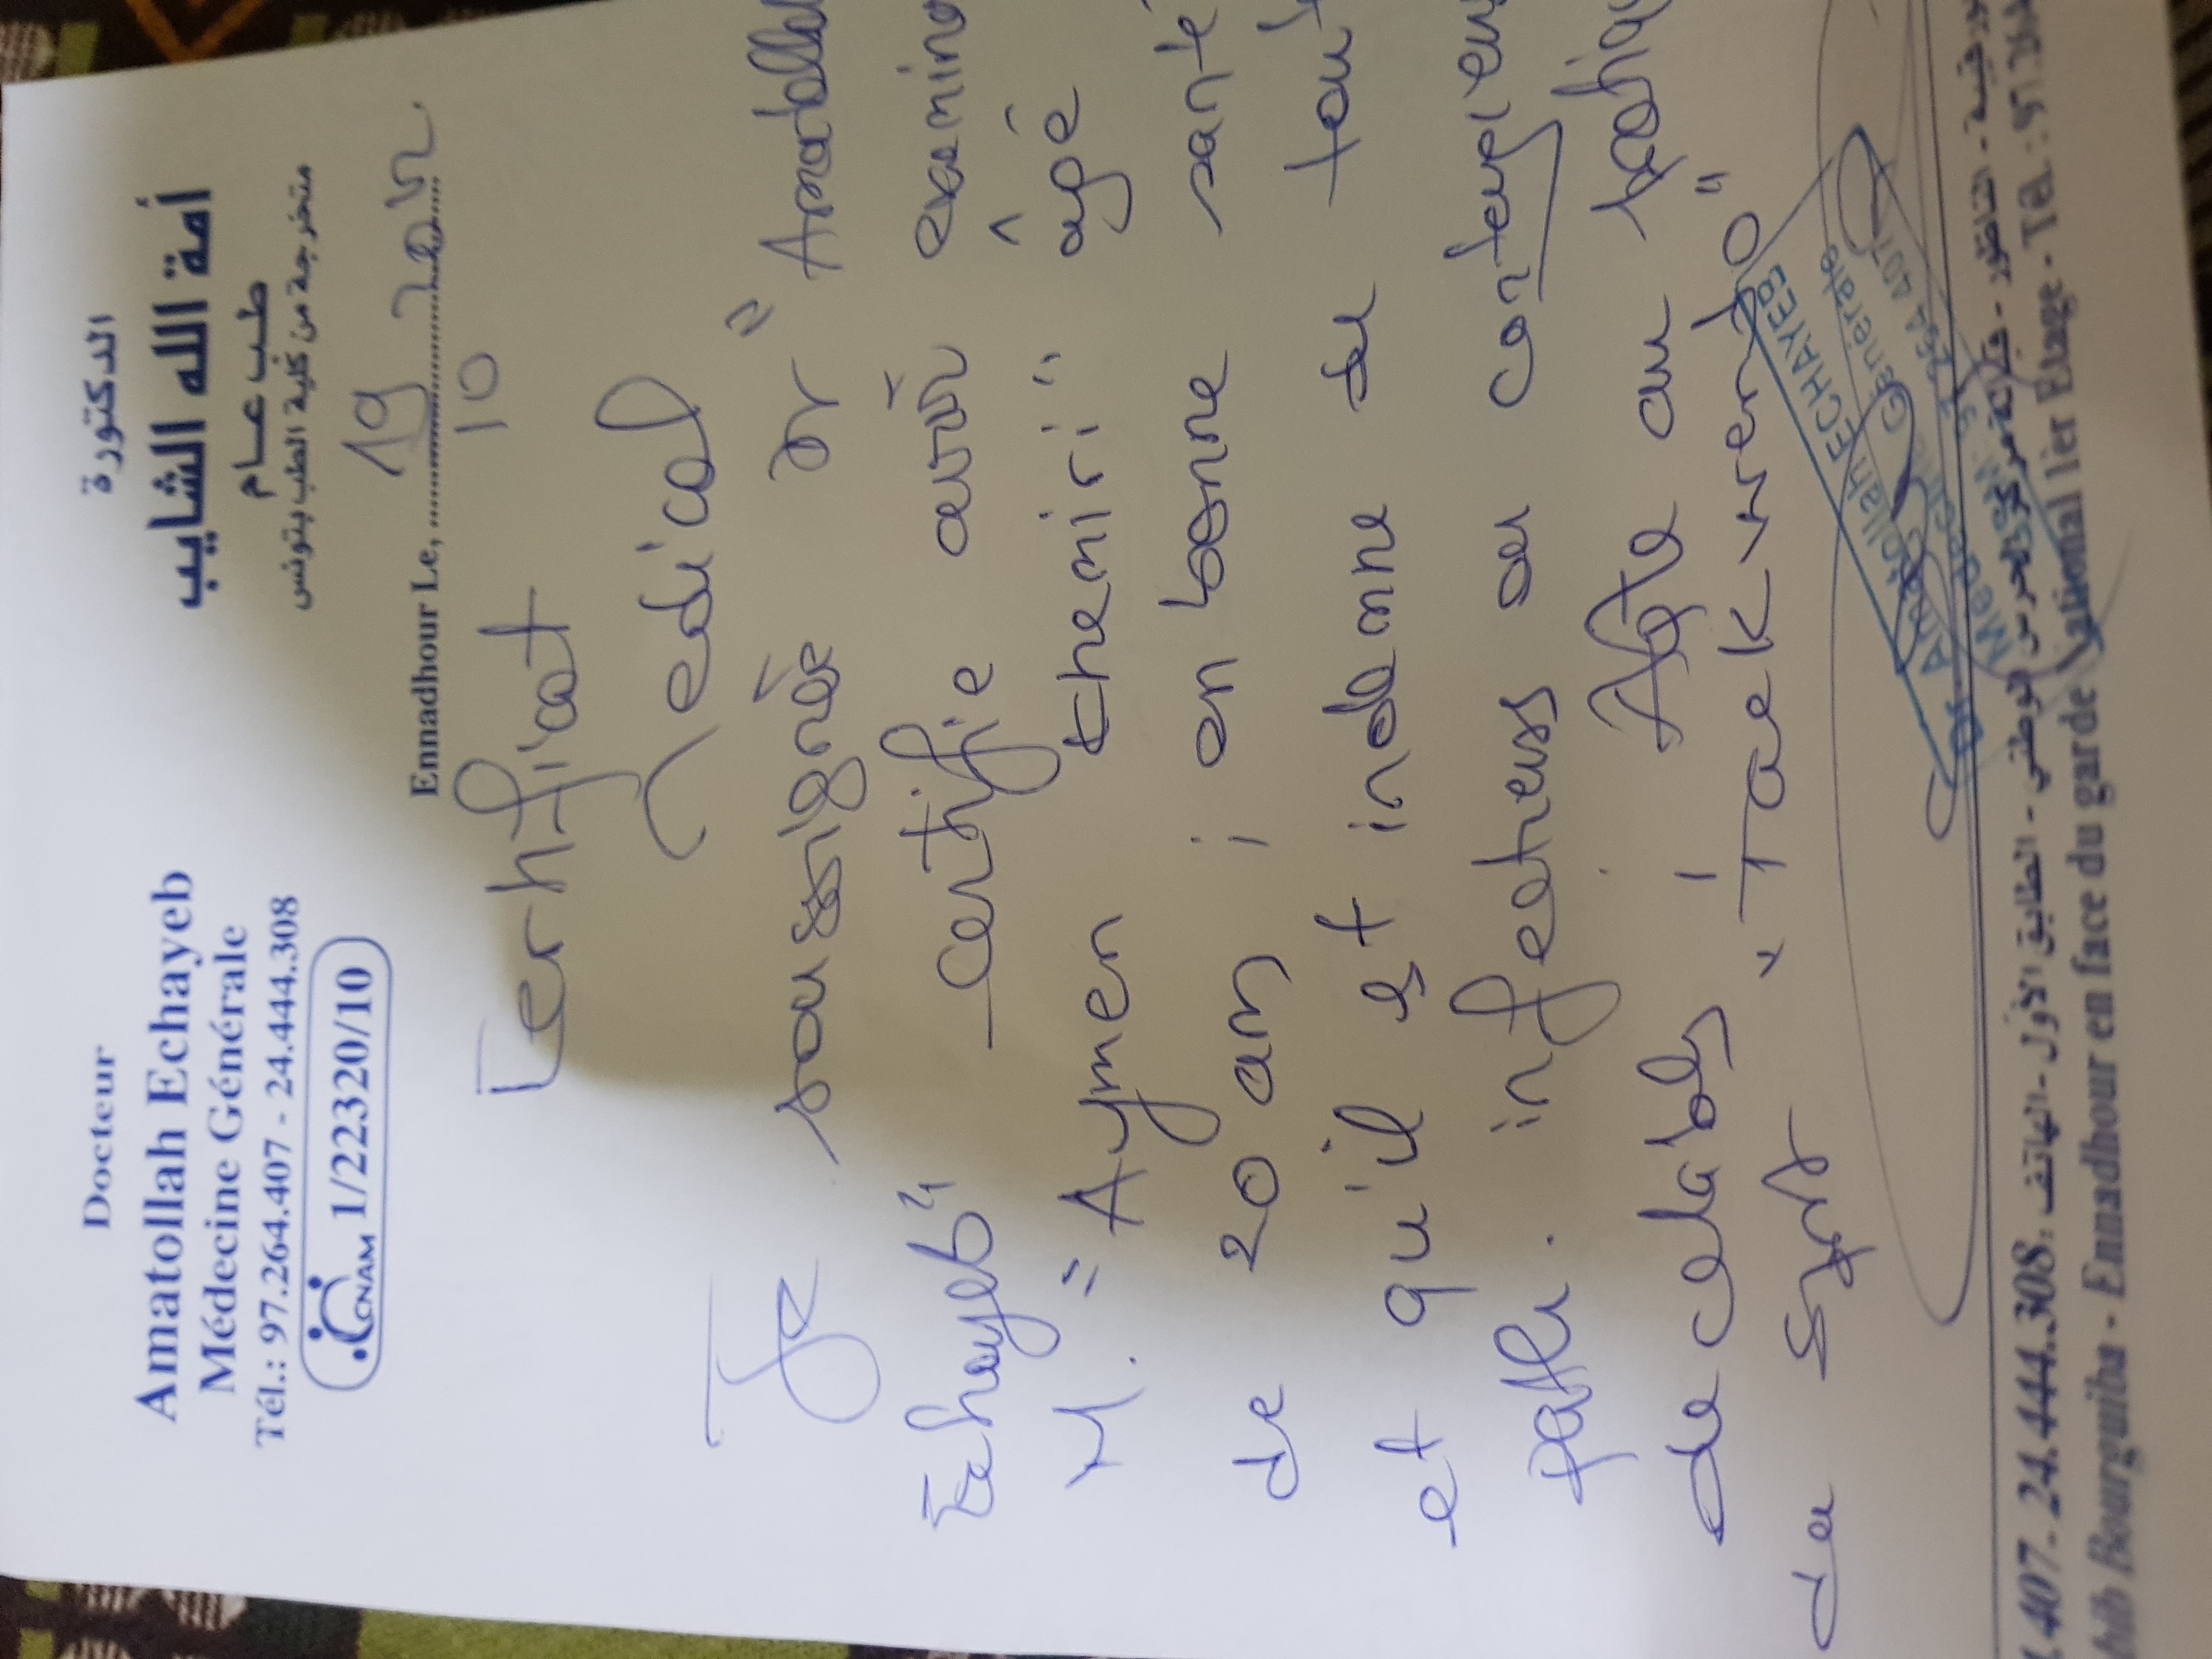 Docteur
Amatollah Echayeb
Médecine Générale
Tél.: 97.264.407 - 24.444.308
CNAM 1/22320/10
الدكتورة
أمة الله الشايب
طب عام
متخرجة من كلية الطب بتونس
Ennadhour Le, 19 10
Certificat
Médical
Je soussignée Dr "Amatollah
Echayeb" certifie avoir examiné
M. "Aymen Chemiri" âgé
de 20 ans ; en bonne santé
et qu'il est indemne de tout
path. infectieuse ou contagieuse
decelable ; Apte au pratique
du Sport "Taekwendo"
Dr. Amatollah ECHAYEB
Médecine Générale
.407 - 24.444.308 :الهاتف - الطابق الأول
bib Bourguiba - Ennadhour en face du garde National 1er Etage - Tél. :